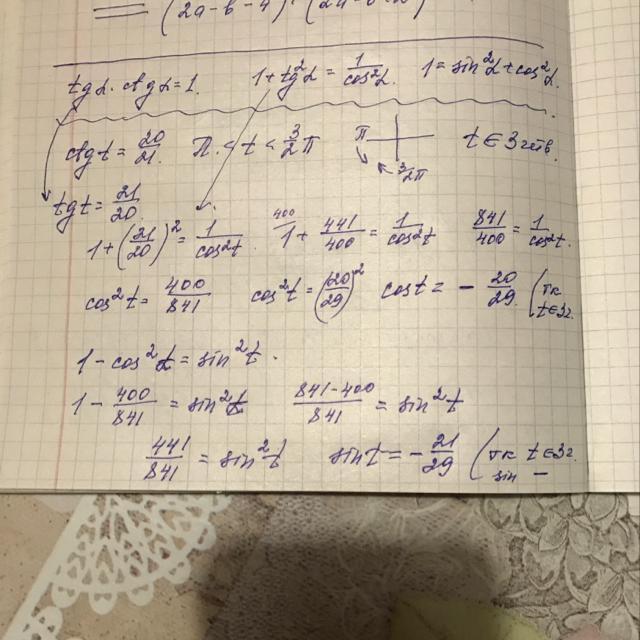 = (2a-b-4)·(2a-b+2)
tgα·ctgα=1. 1+tg²α = 1/cos²α. 1=sin²α+cos²α.
ctgt = 20/21 π < t < 3/2 π π 3/2π t∈3 четв.
tgt = 21/20
1+(21/20)² = 1/cos²t 400 1 + 441/400 = 1/cos²t 841/400 = 1/cos²t.
cos²t = 400/841 cos²t = (20/29)² cost = - 20/29 (тк t∈3ч.
1-cos²t = sin²t.
1 - 400/841 = sin²t 841-400/841 = sin²t
441/841 = sin²t sint = - 21/29 (тк t∈3ч. sin -